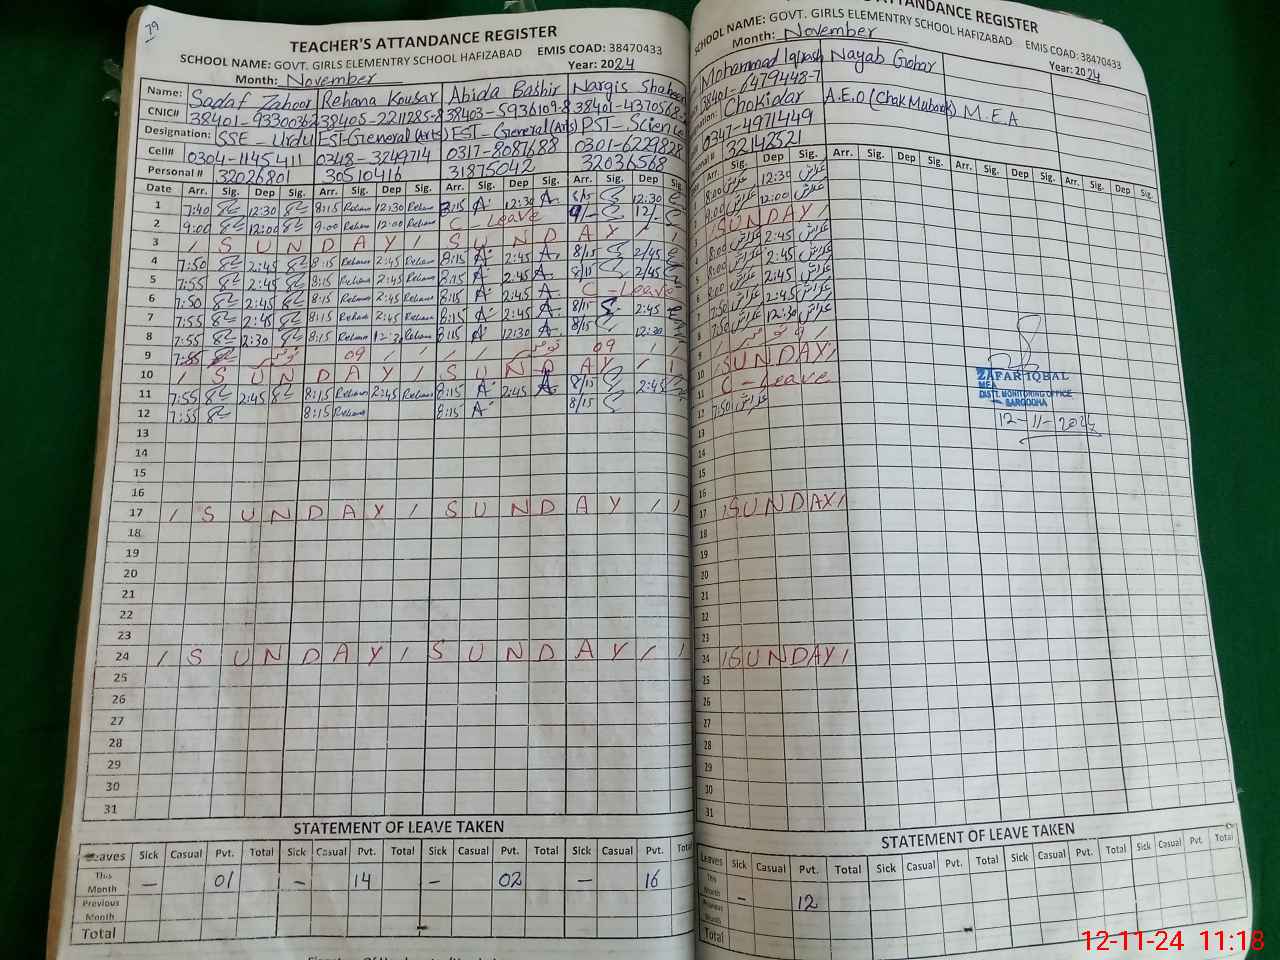 79
TEACHER'S ATTANDANCE REGISTER
SCHOOL NAME: GOVT. GIRLS ELEMENTRY SCHOOL HAFIZABAD EMIS COAD: 38470433
Month: November Year: 2024
Name: Sadaf Zahoor Rehana Kousar Abida Bashir Nargis Shaheen
CNIC# 38401-9330036-2 38405-2211285-8 38403-5936109-8 38401-4370568-
Designation: SSE - Urdu EST-General (Arts) EST - General (Arts) PST - Science
Cell# 0304-1145411 0348-3249714 0317-8087688 0301-6229828
Personal # 32026801 30510416 31875042 32036568
Date Arr. Sig. Dep Sig. Arr. Sig. Dep Sig. Arr. Sig. Dep Sig. Arr. Sig. Dep Sig.
1 7:40 12:30 8:15 Rehana 12:30 Rehana 8:15 A. 12:30 A. 8/15 12:30
2 9:00 12:00 9:00 Rehana 12:00 Rehana C - Leave 9/- 12/-
3 / S U N D A Y / S U N D A Y / /
4 7:50 2:45 8:15 Rehana 2:45 Rehana 8:15 A. 2:45 A. 8/15 2/45
5 7:55 2:45 8:15 Rehana 2:45 Rehana 8:15 A. 2:45 A. 8/15 2/45
6 7:50 2:45 8:15 Rehana 2:45 Rehana 8:15 A. 2:45 A. C - Leave
7 7:55 2:45 8:15 Rehana 2:45 Rehana 8:15 A. 2:45 A. 8/15 2:45
8 7:55 12:30 8:15 Rehana 12:30 Rehana 8:15 A. 12:30 A. 8/15 12:30
9 7:55 09 / / / / 09 / /
10 / S U N D A Y / S U N D A Y / /
11 7:55 2:45 8:15 Rehana 2:45 Rehana 8:15 A. 2:45 A. 8/15 2:45
12 7:55 8:15 Rehana 8:15 A. 8/15
13
14
15
16
17 / S U N D A Y / S U N D A Y / /
18
19
20
21
22
23
24 / S U N D A Y / S U N D A Y / /
25
26
27
28
29
30
31
STATEMENT OF LEAVE TAKEN
Leaves Sick Casual Pvt. Total Sick Casual Pvt. Total Sick Casual Pvt. Total Sick Casual Pvt. Total
This Month - 01 - 14 - 02 - 16
Previous Month
Total
ATTANDANCE REGISTER
SCHOOL NAME: GOVT. GIRLS ELEMENTRY SCHOOL HAFIZABAD EMIS COAD: 38470433
Month: November Year: 2024
Mohammad Nayab Gohar
Chokidar A.E.O (Chak Mubarak) M.E.A
0347-4971449
32142521
Arr. Sig. Dep Sig. Arr. Sig. Dep Sig. Arr. Sig. Dep Sig. Arr. Sig. Dep Sig.
8:00 12:30
9:00 12:00
3 / SUNDAY /
8:00 2:45
8:00 2:45
8:00 2:45
7 7:50 2:45
8 7:50 12:30
9 9 /
10 / SUNDAY /
11 C - Leave
12 7:50
13
14
15
16
17 / SUNDAY /
18
19
20
21
22
23
24 / SUNDAY /
25
26
27
28
29
30
31
ZAFAR IQBAL
MEA
DISTT. MONITORING OFFICE
SARGODHA
12-11-2024
STATEMENT OF LEAVE TAKEN
Leaves Sick Casual Pvt. Total Sick Casual Pvt. Total Sick Casual Pvt. Total Sick Casual Pvt Total
This Month - 12
Previous Month
Total
12-11-24 11:18